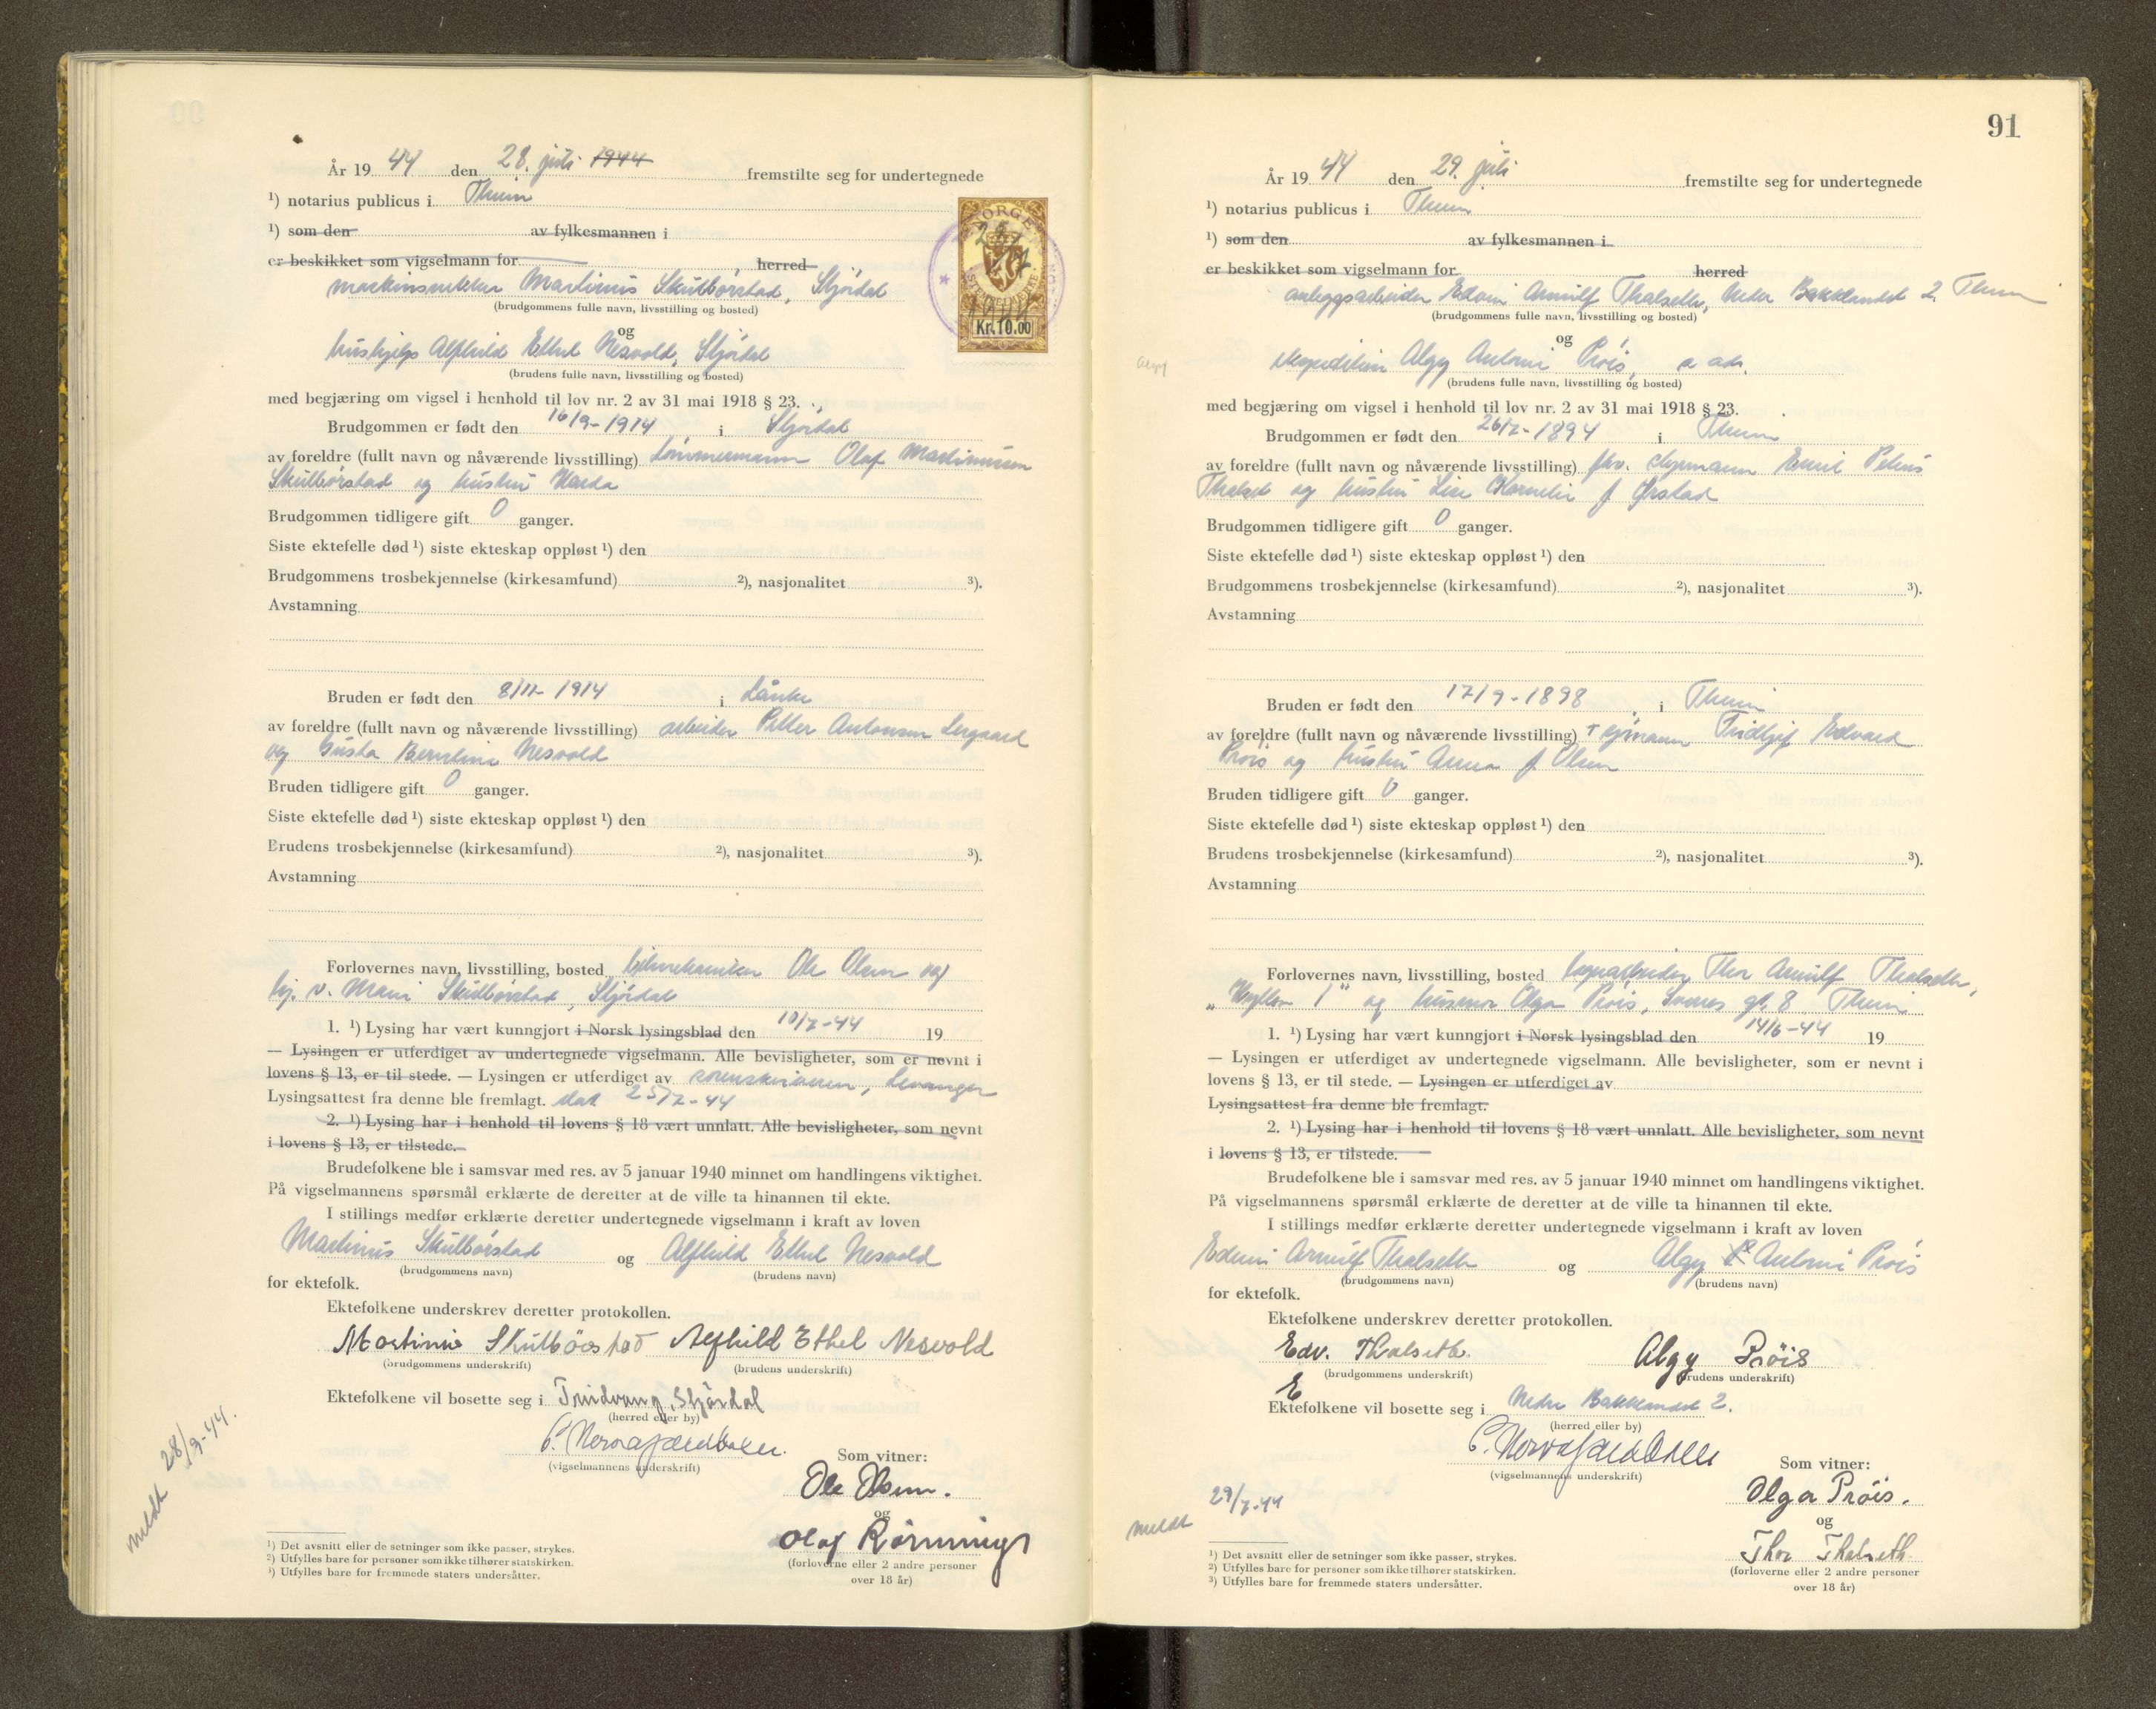 År 19 44 den 28. juli 1944 fremstilte seg for undertegnede
¹) notarius publicus i Thum
¹) som den av fylkesmannen i
er beskikket som vigselmann for herred
Martinius Skulbörstad, Stjördal
(brudgommens fulle navn, livsstilling og bosted)
og
hushjelp Alfhild Ethel Nesvold, Stjördal
(brudens fulle navn, livsstilling og bosted)
med begjæring om vigsel i henhold til lov nr. 2 av 31 mai 1918 § 23.
Brudgommen er født den 16/9-1914 i Stjördal
av foreldre (fullt navn og nåværende livsstilling) tömmermann Olaf Martinusen
Skulbörstad og hustru
Brudgommen tidligere gift 0 ganger.
Siste ektefelle død ¹) siste ekteskap oppløst ¹) den
Brudgommens trosbekjennelse (kirkesamfund) ²), nasjonalitet ³).
Avstamning
Bruden er født den 8/11-1914 i Lånke
av foreldre (fullt navn og nåværende livsstilling) arbeider Petter Antonsen
og Gusta Berntine Nesvold
Bruden tidligere gift 0 ganger.
Siste ektefelle død ¹) siste ekteskap oppløst ¹) den
Brudens trosbekjennelse (kirkesamfund) ²), nasjonalitet ³).
Avstamning
Forlovernes navn, livsstilling, bosted Ole Olsen og
Skulbörstad, Stjördal
1. ¹) Lysing har vært kunngjort i Norsk lysingsblad den 10/7-44 19
— Lysingen er utferdiget av undertegnede vigselmann. Alle bevisligheter, som er nevnt i
lovens § 13, er til stede. — Lysingen er utferdiget av sorenskriveren, Levanger
Lysingsattest fra denne ble fremlagt. dat 25/7-44
2. ¹) Lysing har i henhold til lovens § 18 vært unnlatt. Alle bevisligheter, som nevnt
i lovens § 13, er tilstede.
Brudefolkene ble i samsvar med res. av 5 januar 1940 minnet om handlingens viktighet.
På vigselmannens spørsmål erklærte de deretter at de ville ta hinannen til ekte.
I stillings medfør erklærte deretter undertegnede vigselmann i kraft av loven
Martinus Skulbörstad og Alfhild Ethel Nesvold
(brudgommens navn) (brudens navn)
for ektefolk.
Ektefolkene underskrev deretter protokollen.
Martinus Skulbörstad Alfhild Ethel Nesvold
(brudgommens underskrift) (brudens underskrift)
Ektefolkene vil bosette seg i Stjördal
(herred eller by)
(vigselmannens underskrift)
Som vitner:
Ole Olsen.
og
Olaf
(forloverne eller 2 andre personer
over 18 år)
meldt 28/9-44.
¹) Det avsnitt eller de setninger som ikke passer, strykes.
²) Utfylles bare for personer som ikke tilhører statskirken.
³) Utfylles bare for fremmede staters undersåtter.
NORGE
Kr. 10.00
91
År 19 44 den 29. juli fremstilte seg for undertegnede
¹) notarius publicus i Thum
¹) som den av fylkesmannen i
er beskikket som vigselmann for herred
anleggsarbeider Edvin Arnulf Thalseth, Nedre Bakklandet 2, Thum
(brudgommens fulle navn, livsstilling og bosted)
og
Algy Antoni Pröis, s. adr.
(brudens fulle navn, livsstilling og bosted)
Algy
med begjæring om vigsel i henhold til lov nr. 2 av 31 mai 1918 § 23.
Brudgommen er født den 26/7-1894 i Thum
av foreldre (fullt navn og nåværende livsstilling) fhv. styrmann Emil Petrus
Thalseth og hustru Lise Kornelie f. Örstad
Brudgommen tidligere gift 0 ganger.
Siste ektefelle død ¹) siste ekteskap oppløst ¹) den
Brudgommens trosbekjennelse (kirkesamfund) ²), nasjonalitet ³).
Avstamning
Bruden er født den 17/9-1898 i Thum
av foreldre (fullt navn og nåværende livsstilling) † sjömann Fridtjof Edvard
Pröis og hustru Anna f. Olsen
Bruden tidligere gift 0 ganger.
Siste ektefelle død ¹) siste ekteskap oppløst ¹) den
Brudens trosbekjennelse (kirkesamfund) ²), nasjonalitet ³).
Avstamning
Forlovernes navn, livsstilling, bosted Thor Arnulf Thalseth,
og Olga Pröis, gt. 8, Thum
1. ¹) Lysing har vært kunngjort i Norsk lysingsblad den 14/6-44 19
— Lysingen er utferdiget av undertegnede vigselmann. Alle bevisligheter, som er nevnt i
lovens § 13, er til stede. — Lysingen er utferdiget av
Lysingsattest fra denne ble fremlagt.
2. ¹) Lysing har i henhold til lovens § 18 vært unnlatt. Alle bevisligheter, som nevnt
i lovens § 13, er tilstede.
Brudefolkene ble i samsvar med res. av 5 januar 1940 minnet om handlingens viktighet.
På vigselmannens spørsmål erklærte de deretter at de ville ta hinannen til ekte.
I stillings medfør erklærte deretter undertegnede vigselmann i kraft av loven
Edvin Arnulf Thalseth og Algy Antoni Pröis
(brudgommens navn) (brudens navn)
for ektefolk.
Ektefolkene underskrev deretter protokollen.
Edv. Thalseth. Algy Pröis
(brudgommens underskrift) (brudens underskrift)
E
Ektefolkene vil bosette seg i Nedre Bakklandet 2.
(herred eller by)
(vigselmannens underskrift)
Som vitner:
Olga Pröis.
og
Thor Thalseth.
(forloverne eller 2 andre personer
over 18 år)
meldt 29/7-44
¹) Det avsnitt eller de setninger som ikke passer, strykes.
²) Utfylles bare for personer som ikke tilhører statskirken.
³) Utfylles bare for fremmede staters undersåtter.